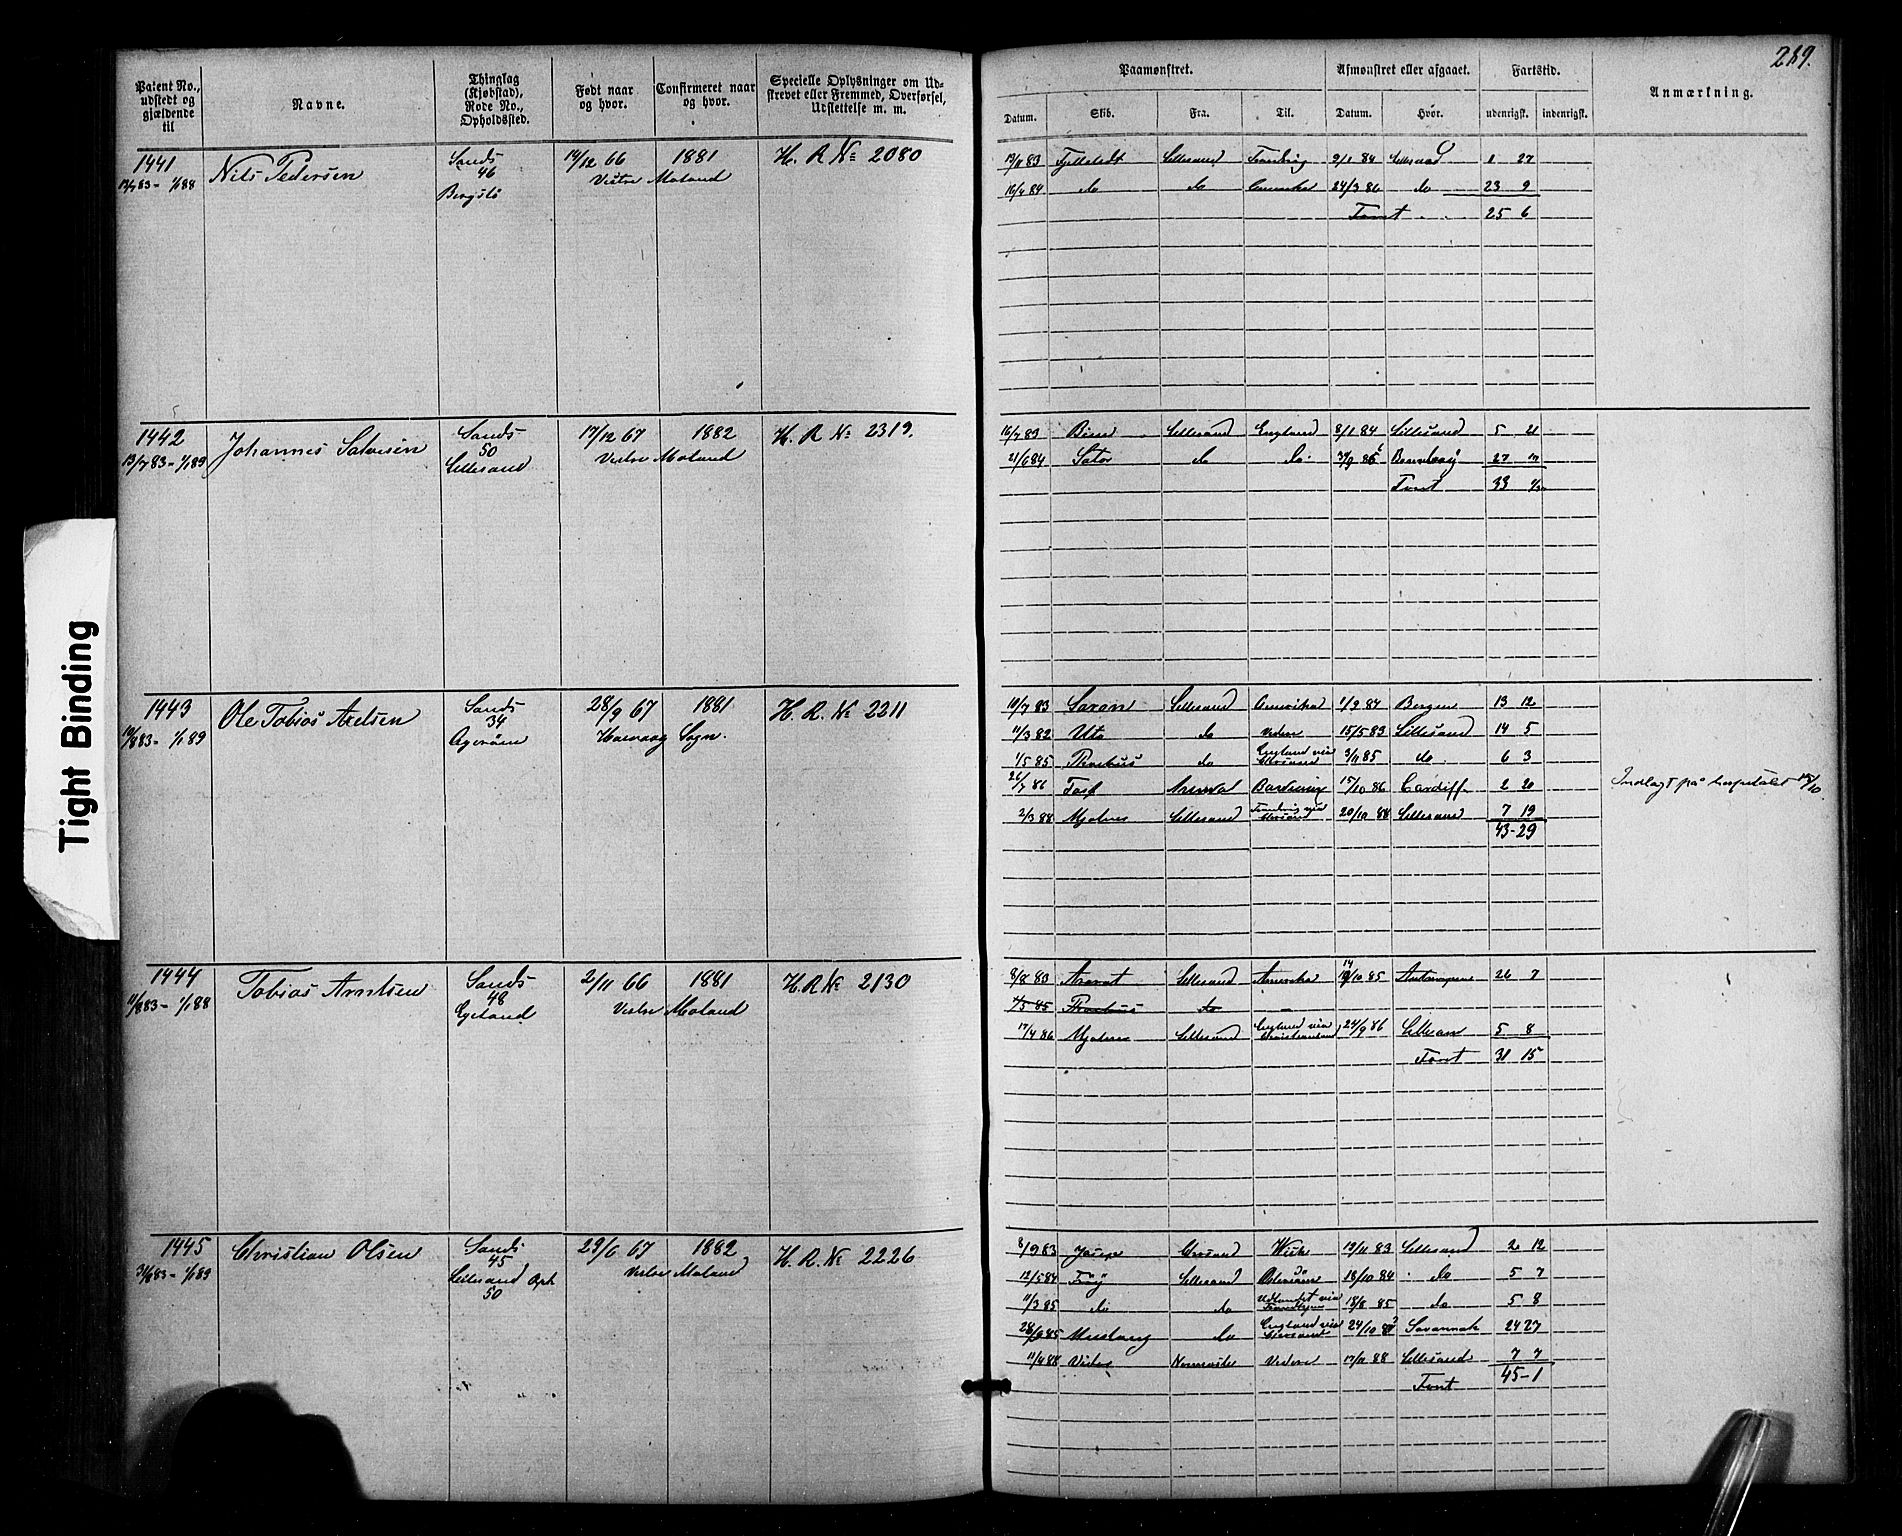 Tight Binding
289.
Patent No., udstedt og gjældende til
Navne.
Thinglag (Kjøbstad), Rode No., Opholdssted.
Født naar og hvor.
Confirmeret naar og hvor.
Specielle Oplysninger om Udstrevet eller Fremmed, Overførsel, Udslettelse m. m.
Paamønstret.
Afmønstret eller afgaaet.
Fartstid.
Anmærkning.
Datum. Skib. Fra. Til. Datum. Hvor. udenrigsk. indenrigsk.
1441 Nils Pedersen Sands 14/12 66 1881 H. R № 2080
46 Vestre Moland
13/7 83 - 1/1 88
Bergstø
Lillesand 9/1 84 Lillesand 1 27
16/4 84 do do 24/3 86 do 23 9
Tont 25 6
1442 Johannes Salvesen Sands 17/12 67 1882 H. R № 2319.
50 Vestre Moland
13/7 83 - 1/1 89 Lillesand
16/7 83 Lillesand England 8/1 84 Lillesand 5 21
21/6 84 Sator do do 27
Tont 33
1443 Ole Tobias Axelsen Sands 28/9 67 1881 H. R. № 2211
34 Høivaag Sogn.
- 1/1 89 Agerøen
10/7 83 Saron Lillesand Amerika 1/9 84 Bergen 13 12
11/3 82 Uto do 15/5 83 Lillesand 14 5
1/5 85 do England via 3/11 85 do 6 3
26/7 86 Arendal 15/10 86 Cardiff 2 20 Indlagt på hospitalet 15/10
2/3 88 Mjølner Lillesand 20/10 88 Lillesand 7 19
43-29
1444 Tobias Arntsen Sands 2/11 66 1881 H. R № 2130
48 Vestre Moland
11/8 83 - 1/1 88 Egeland
8/8 83 Ararat Lillesand Amerika 10 85 Antwerpen 26 7
85 do
17/4 86 Mjølner Lillesand England via Christiansand 24/9 86 Lillesan 5 8
Tont 31 15
1445 Christian Olsen Sands 29/6 67 1882 H. R. № 2226
45 Vestre Moland
31/8 83 - 1/1 89 Lillesand Oph
50
8/9 83 19/11 83 Lillesand 2 12
12/5 84 Frøy Lillesand 18/10 84 do 5 7
11/3 85 do do Udlandet via 18/8 85 do 5 8
Mustang do England via 24/10 Savannah 24 27
11/4 88 17/11 88 Lillesand 7 7
45-1
Tont